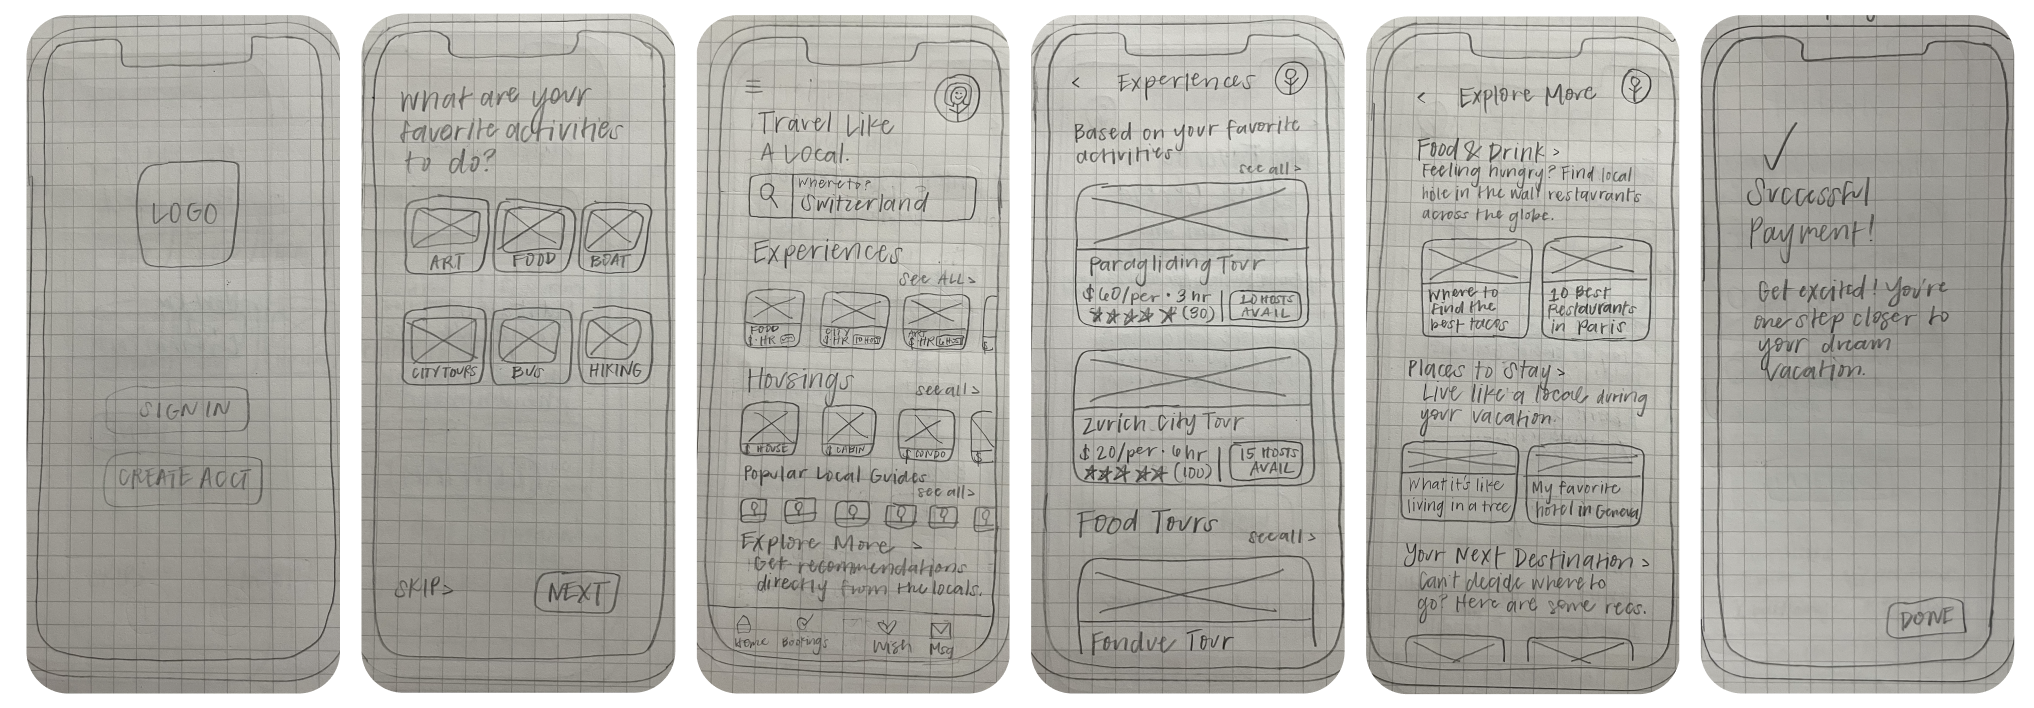 LOGO
SIGN IN
CREATE ACCT
What are your
favorite activities
to do?
ART
FOOD
BOAT
CITY TOURS
BUS
HIKING
SKIP>
NEXT
Travel Like
A Local.
Where to?
Switzerland
Experiences
See ALL>
FOOD
$·HR
CITY
$·HR
10 HOST
ART
$·HR
6 HOST
$
Housings
see all>
$ HOUSE
$ CABIN
$ CONDO
$
Popular Local Guides
see all>
Explore More >
Get recommendations
directly from the locals.
Home
Bookings
Wish
Msg
< Experiences
Based on your favorite
activities
see all>
Paragliding Tour
$60/per · 3 hr
(30)
10 HOSTS
AVAIL
Zurich City Tour
$20/per · 6 hr
(100)
15 HOSTS
AVAIL
Food Tours
see all>
Fondue Tour
< Explore More
Food & Drink >
Feeling hungry? Find local
hole in the wall restaurants
across the globe.
Where to
Find the
best tacos
10 Best
Restaurants
in Paris
Places to Stay>
Live like a local during
your vacation.
What it's like
living in a tree
My favorite
hotel in Geneva
Your Next Destination >
Can't decide where to
go? Here are some recs.
Successful
Payment!
Get excited! You're
one step closer to
your dream
vacation.
DONE